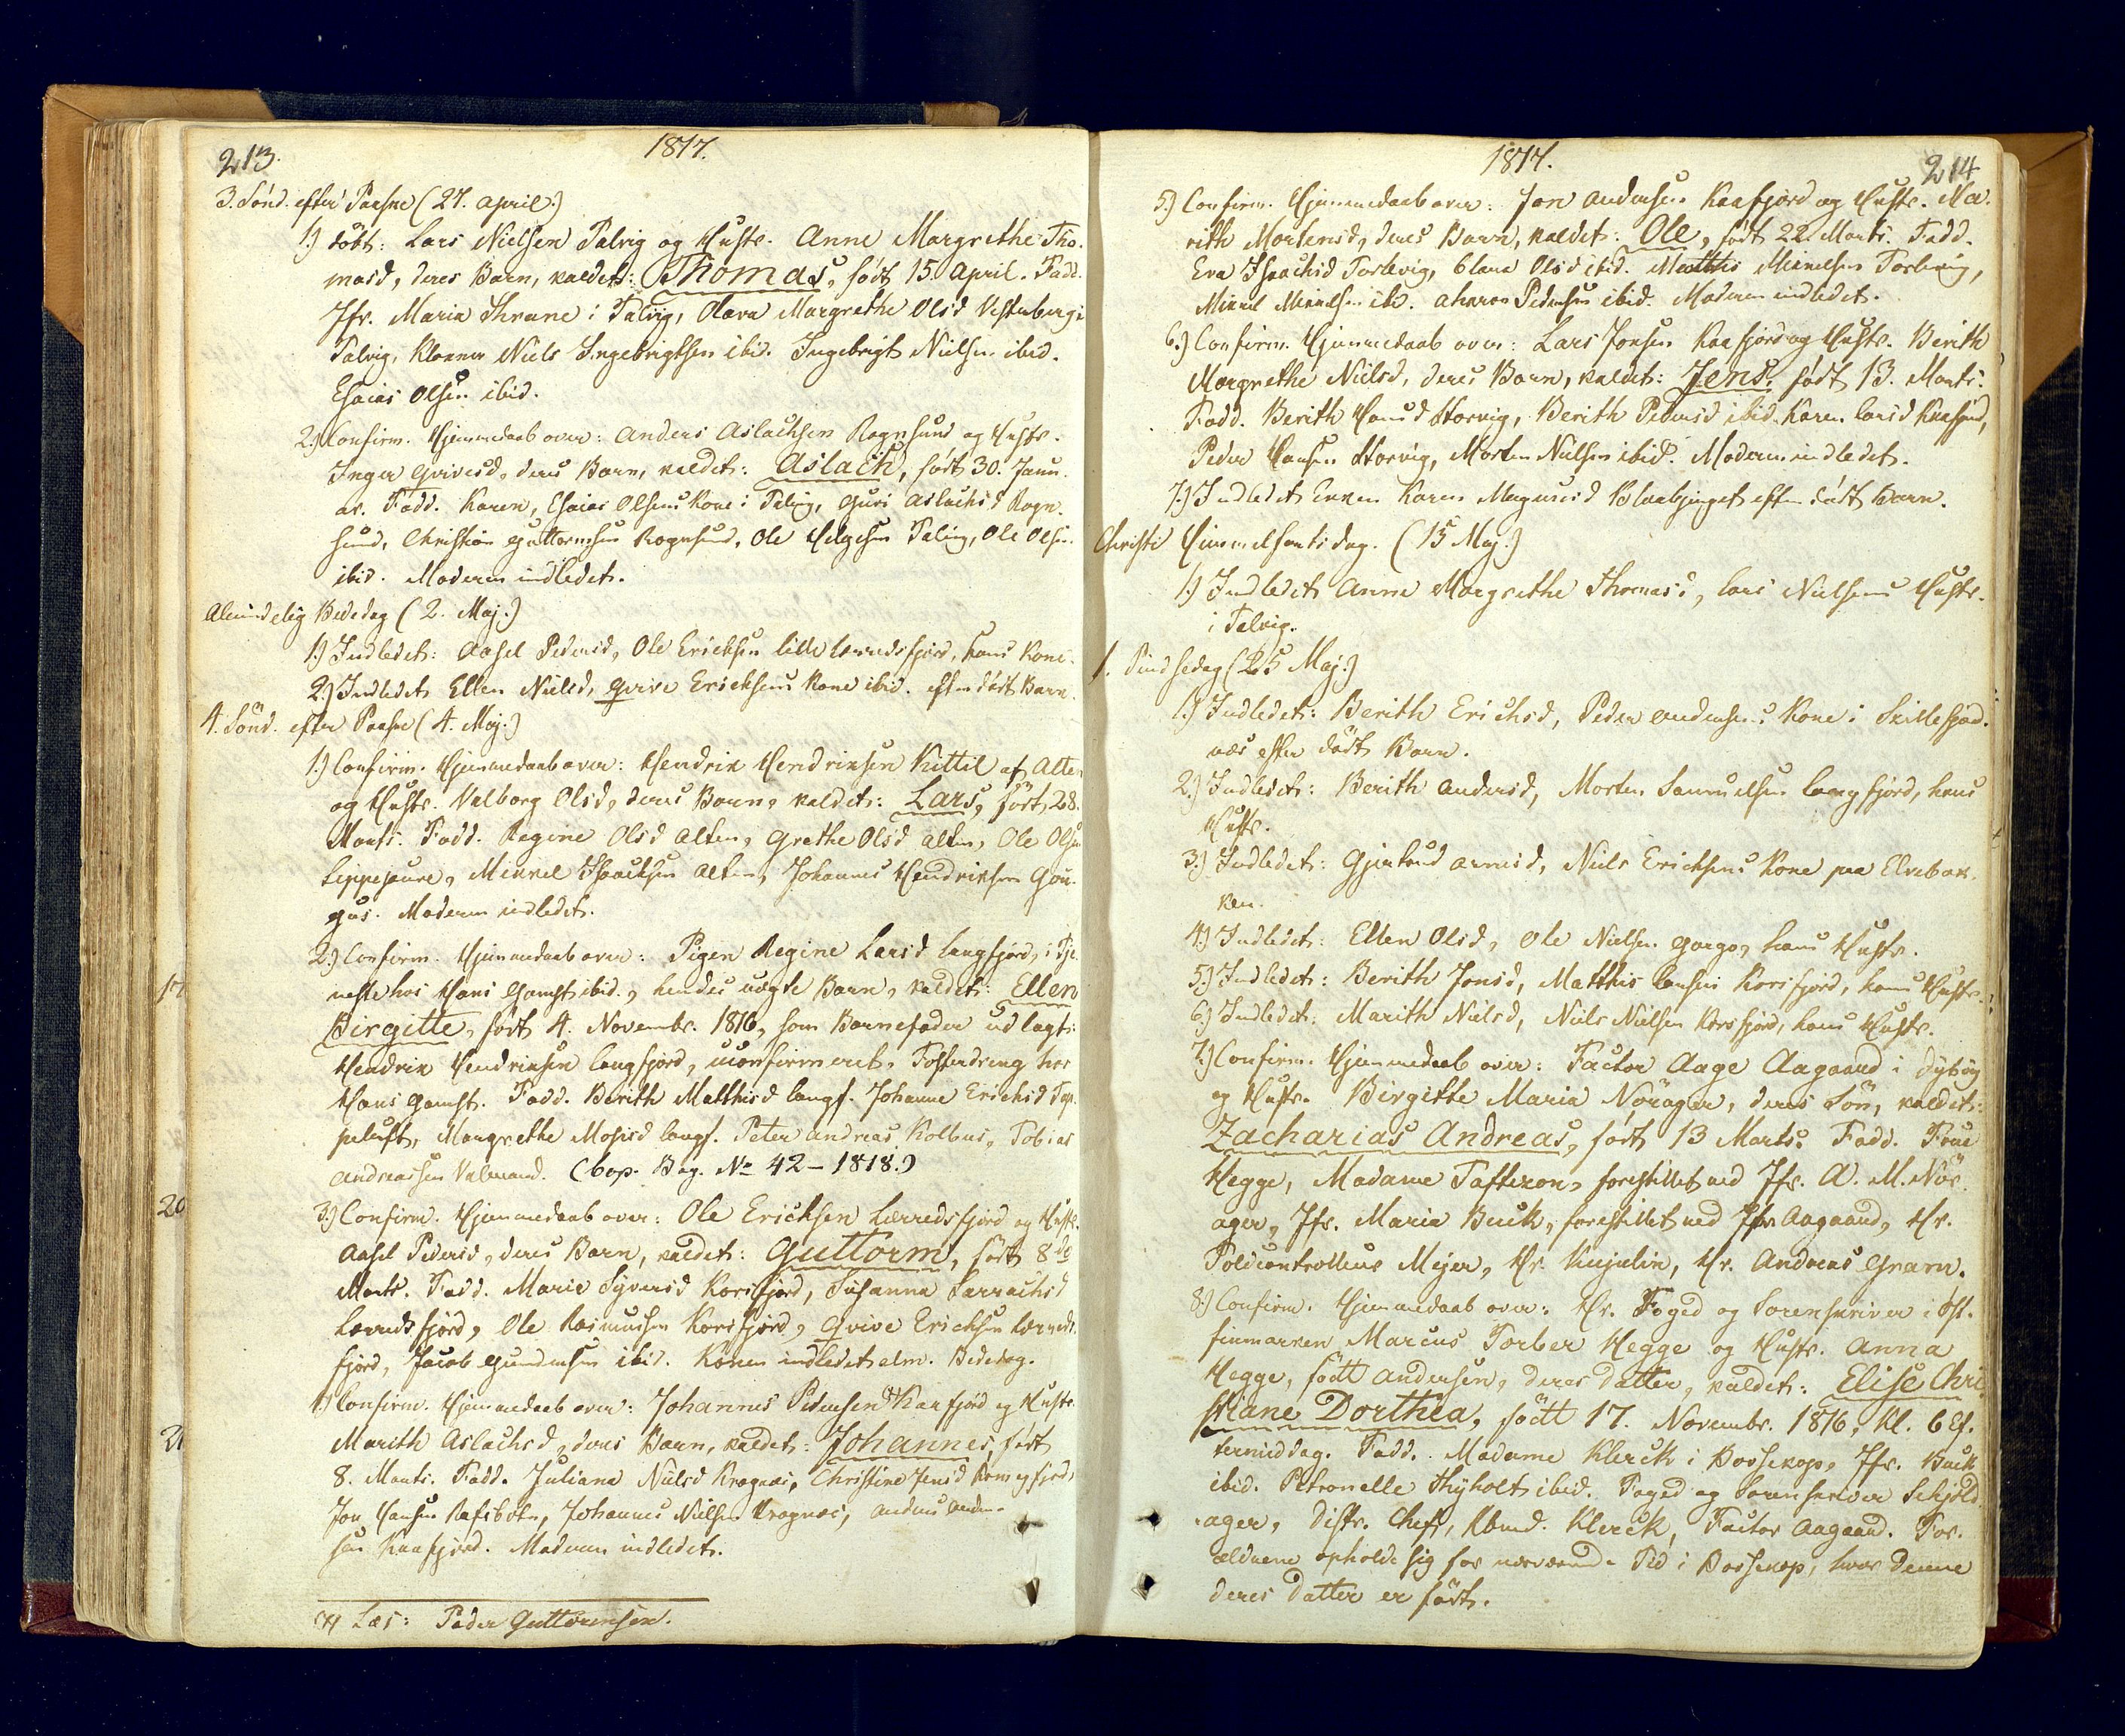 213.
1817.
3. Sönd. efter Paaske (27. April.)
1.) Döbt: Lars Nielsen Talvig og Hustr. Anne Margrethe Tho-
masd, deres Barn, kaldet: Thomas, födt 15. April. Fadd.
Jfr. Maria Thrane i Talvig, Olava Margrethe Olsd Vestenberg i
Talvig, Klokker Niels Ingebrigtsen ibid. Ingebrigt Nielsen ibid.
Esaias Olsen ibid.
2.) Confirm. Hjemmedaab over: Anders Aslachsen Rognsund og Hustr.
Inger Qvivesd, deres Barn, kaldet: Aslach, födt 30. Janu-
ar. Fadd. Karen, Esaias Olsens Kone i Talvig, Guri Aslachsd Rogn-
sund, Christian Guttormsen Rognsund, Ole Helgesen Talvig, Ole Olsen
ibid. Moderen indledet.
Almindelig Bededag (2. Maj.)
1.) Indledet: Aasel Pedersd, Ole Ericksen lille Lerredsfjord, hans Kone.
2.) Indledet Ellen Nielsd, Qvive Ericksens Kone ibid. efter födt Barn.
4. Sönd. efter Paaske (4. Maj.)
1.) Confirm. Hjemmedaab over: Hendrik Hendriksen Kittil af Alten
og Hustr. Valborg Olsd, deres Barn, kaldet: Lars, födt 28.
Marts. Fadd. Regine Olsd Alten, Grethe Olsd Alten, Ole Olsen
Lippejaure, Mikkel Isaacksen Alten, Johannes Hendriksen Gou-
gus. Moderen indledet.
2.) Confirm. Hjemmedaab over: Pigen Regine Larsd Langfjord, i Tje-
neste hos Hans Gamst ibid., hendes uægte Barn, kaldet: Ellen
17
Birgitte, födt 4. Novembr. 1816, som Barnefader udlagt:
Hendrik Hendriksen Langfjord, uconfirmeret, Fosterdreng hos
Hans Gamst. Fadd. Berith Matthisd Langf. Johanne Erichsd Tap-
peluft, Margrethe Mosisd Langf. Peter Andreas Kolbus, Tobias
Andreassen Valmand. (Cop. Bog. No 42 – 1818.)
20
3.) Confirm. Hjemmedaab over: Ole Ericksen Lerredsfjord og Hustr.
Aasel Pedersd, deres Barn, kaldet: Guttorm, födt 8de
Marts. Fadd. Marie Syversd Korsfjord, Susanna Sarrachsd
Lerredsfjord, Ole Rasmussen Korsfjord, Qvive Ericksen Lerreds-
fjord, Jacob Gundersen ibid. Konen indledet alm. Bededag.
4.) Confirm. Hjemmedaab over: Johannes Pedersen (*) Kaafjord og Hustr.
21
Marith Aslachsd, deres Barn, kaldet: Johannes, födt
8. Marts. Fadd. Juliana Nielsd Kragnæs, Christine Jensd Komagfjord,
Jon Hansen Rafsbotn, Johannes Nielsen Kragnæs, Anders Ander-
sen Kaafjord. Moderen indledet.
(*) Læs: Peder Guttormsen.
1817.
214
5.) Confirm. Hjemmedaab over: Jon Andersen Kaafjord og Hustr. Ma-
rith Mortensd, deres Barn, kaldet: Ole, födt 22. Marts. Fadd.
Eva Isaachsd Torlevig, Clara Olsd ibid. Matthis Mikkelsen Torlevig,
Mikkel Mikkelsen ibid. Aharon Pedersen ibid. Moderen indledet.
6.) Confirm. Hjemmedaab over: Lars Jonsen Kaafjord og Hustr. Berith
Margrethe Nielsd, deres Barn, kaldet: Jens, födt 13. Marts.
Fadd. Berith Hansd Storvig, Berith Pedersd ibid. Karen Larsd Kaafjord,
Peder Hansen Storvig, Morten Nielsen ibid. Moderen indledet.
7.) Indledet Enken Karen Magnusd Kvalbjerget efter födt Barn.
Christi Himmelfartsdag. (15 Maj.)
1.) Indledet Anne Margrethe Thomasd, Lars Nielsens Hustr.
i Talvig.
1. Pindsedag (25 Maj.)
1.) Indledet: Berith Erichsd, Peder Andersens Kone i Skillefjord-
næs efter födt Barn.
2.) Indledet: Berith Andersd, Morten Samuelsen Langfjord, hans
Hustr.
3.) Indledet: Gjertrud Arnesd, Niels Ericksens Kone paa Elvebak-
ken.
4.) Indledet: Ellen Olsd, Ole Nielsen Gargo, hans Hustr.
5.) Indledet: Berith Jonsd, Matthis Larsen Korsfjord, hans Hustr.
6.) Indledet: Marith Nielsd, Niels Nielsen Korsfjord, hans Hustr.
7.) Confirm. Hjemmedaab over: Factor Aage Aagaard i Dybvig
og Hustr. Birgitte Maria Nörager, deres Sön, kaldet:
Zacharias Andreas, födt 13 Marts. Fadd. Frue
Hegge, Madame Tafteson, forestillet ved Jfr. A. M. Nör-
ager, Jfr. Maria Buck, forestillet ved Jfr Aagaard, Hr.
Toldcontrolleur Mejer, Hr. Kujulin, Hr. Andreas Gram.
8.) Confirm. Hjemmedaab over: Hr. Foged og Sorenskriver i Öst-
finmarken Marcus Torber Hegge og Hustr. Anna
Hegge, född Andersen, deres Datter, kaldet: Elise Chri
stiane Dorthea, född 17. Novembr. 1816, Kl. 6 Ef-
termiddag. Fadd. Madame Klerck i Bossekop, Jfr. Buck
ibid. Petronelle Thyholt ibid. Foged og Sorenskriver Schjöld-
ager, Distr. Chef, Kbmd. Klerck, Factor Aagaard. For-
ældrene opholde sig for nærværende Tid i Bossekop, hvor denne
deres Datter er födt.